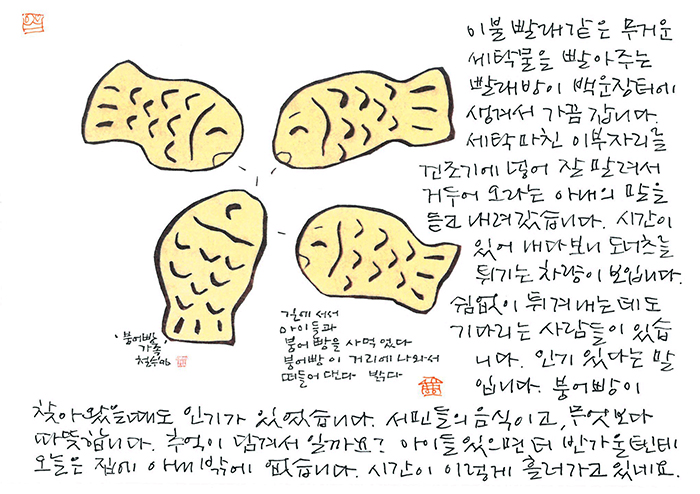 이불 빨래같은 무거운
세탁물을 빨아주는
빨래방이 백운장터에
생겨서 가끔 갑니다.
세탁마친 이부자리를
건조기에 넣어 잘 말려서
거두어 오라는 아내의 말을
듣고 내려갔습니다. 시간이
있어 내다보니 도너츠를
튀기는 차량이 보입니다.
쉼없이 튀겨내는데도
기다리는 사람들이 있습
니다. 인기 있다는 말
입니다. 붕어빵이
찾아왔을때도 인기가 있었습니다. 서민들의 음식이고, 무엇보다
따뜻합니다. 추억이 담겨서 일까요? 아이들 있으면 더 반가울텐데
오늘은 집에 아내밖에 없습니다. 시간이 이렇게 흘러가고 있네요.
'붕어빵
가족'
철수
길에 서서
아이들과
붕어빵을 사먹었다
붕어빵이 거리에 나와서
떠들어 댄다